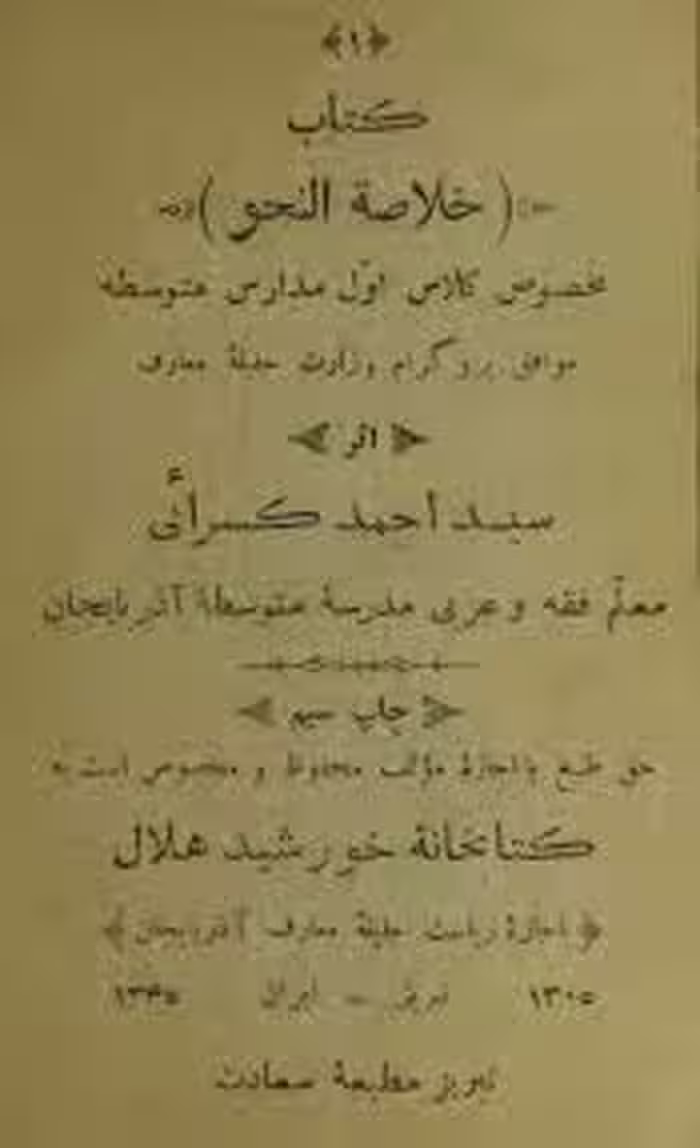 ﴿۱﴾
كتاب
( خلاصة النحو )
مخصوص كلاس اوّل مدارس متوسطه
موافق پروگرام وزارت جليلهٔ معارف
اثر
سيد احمد كسرائى
معلّم فقه و عربى مدرسهٔ متوسطهٔ آذربايجان
چاپ سيم
حق طبع با اجازهٔ مؤلف محفوظ و مخصوص است به
كتابخانهٔ خورشيد هلال
﴿ اجازهٔ رياست جليلهٔ معارف آذربايجان ﴾
۱۳۰۵ تبريز – ايران ۱۳۴۵
تبريز مطبعهٔ سعادت